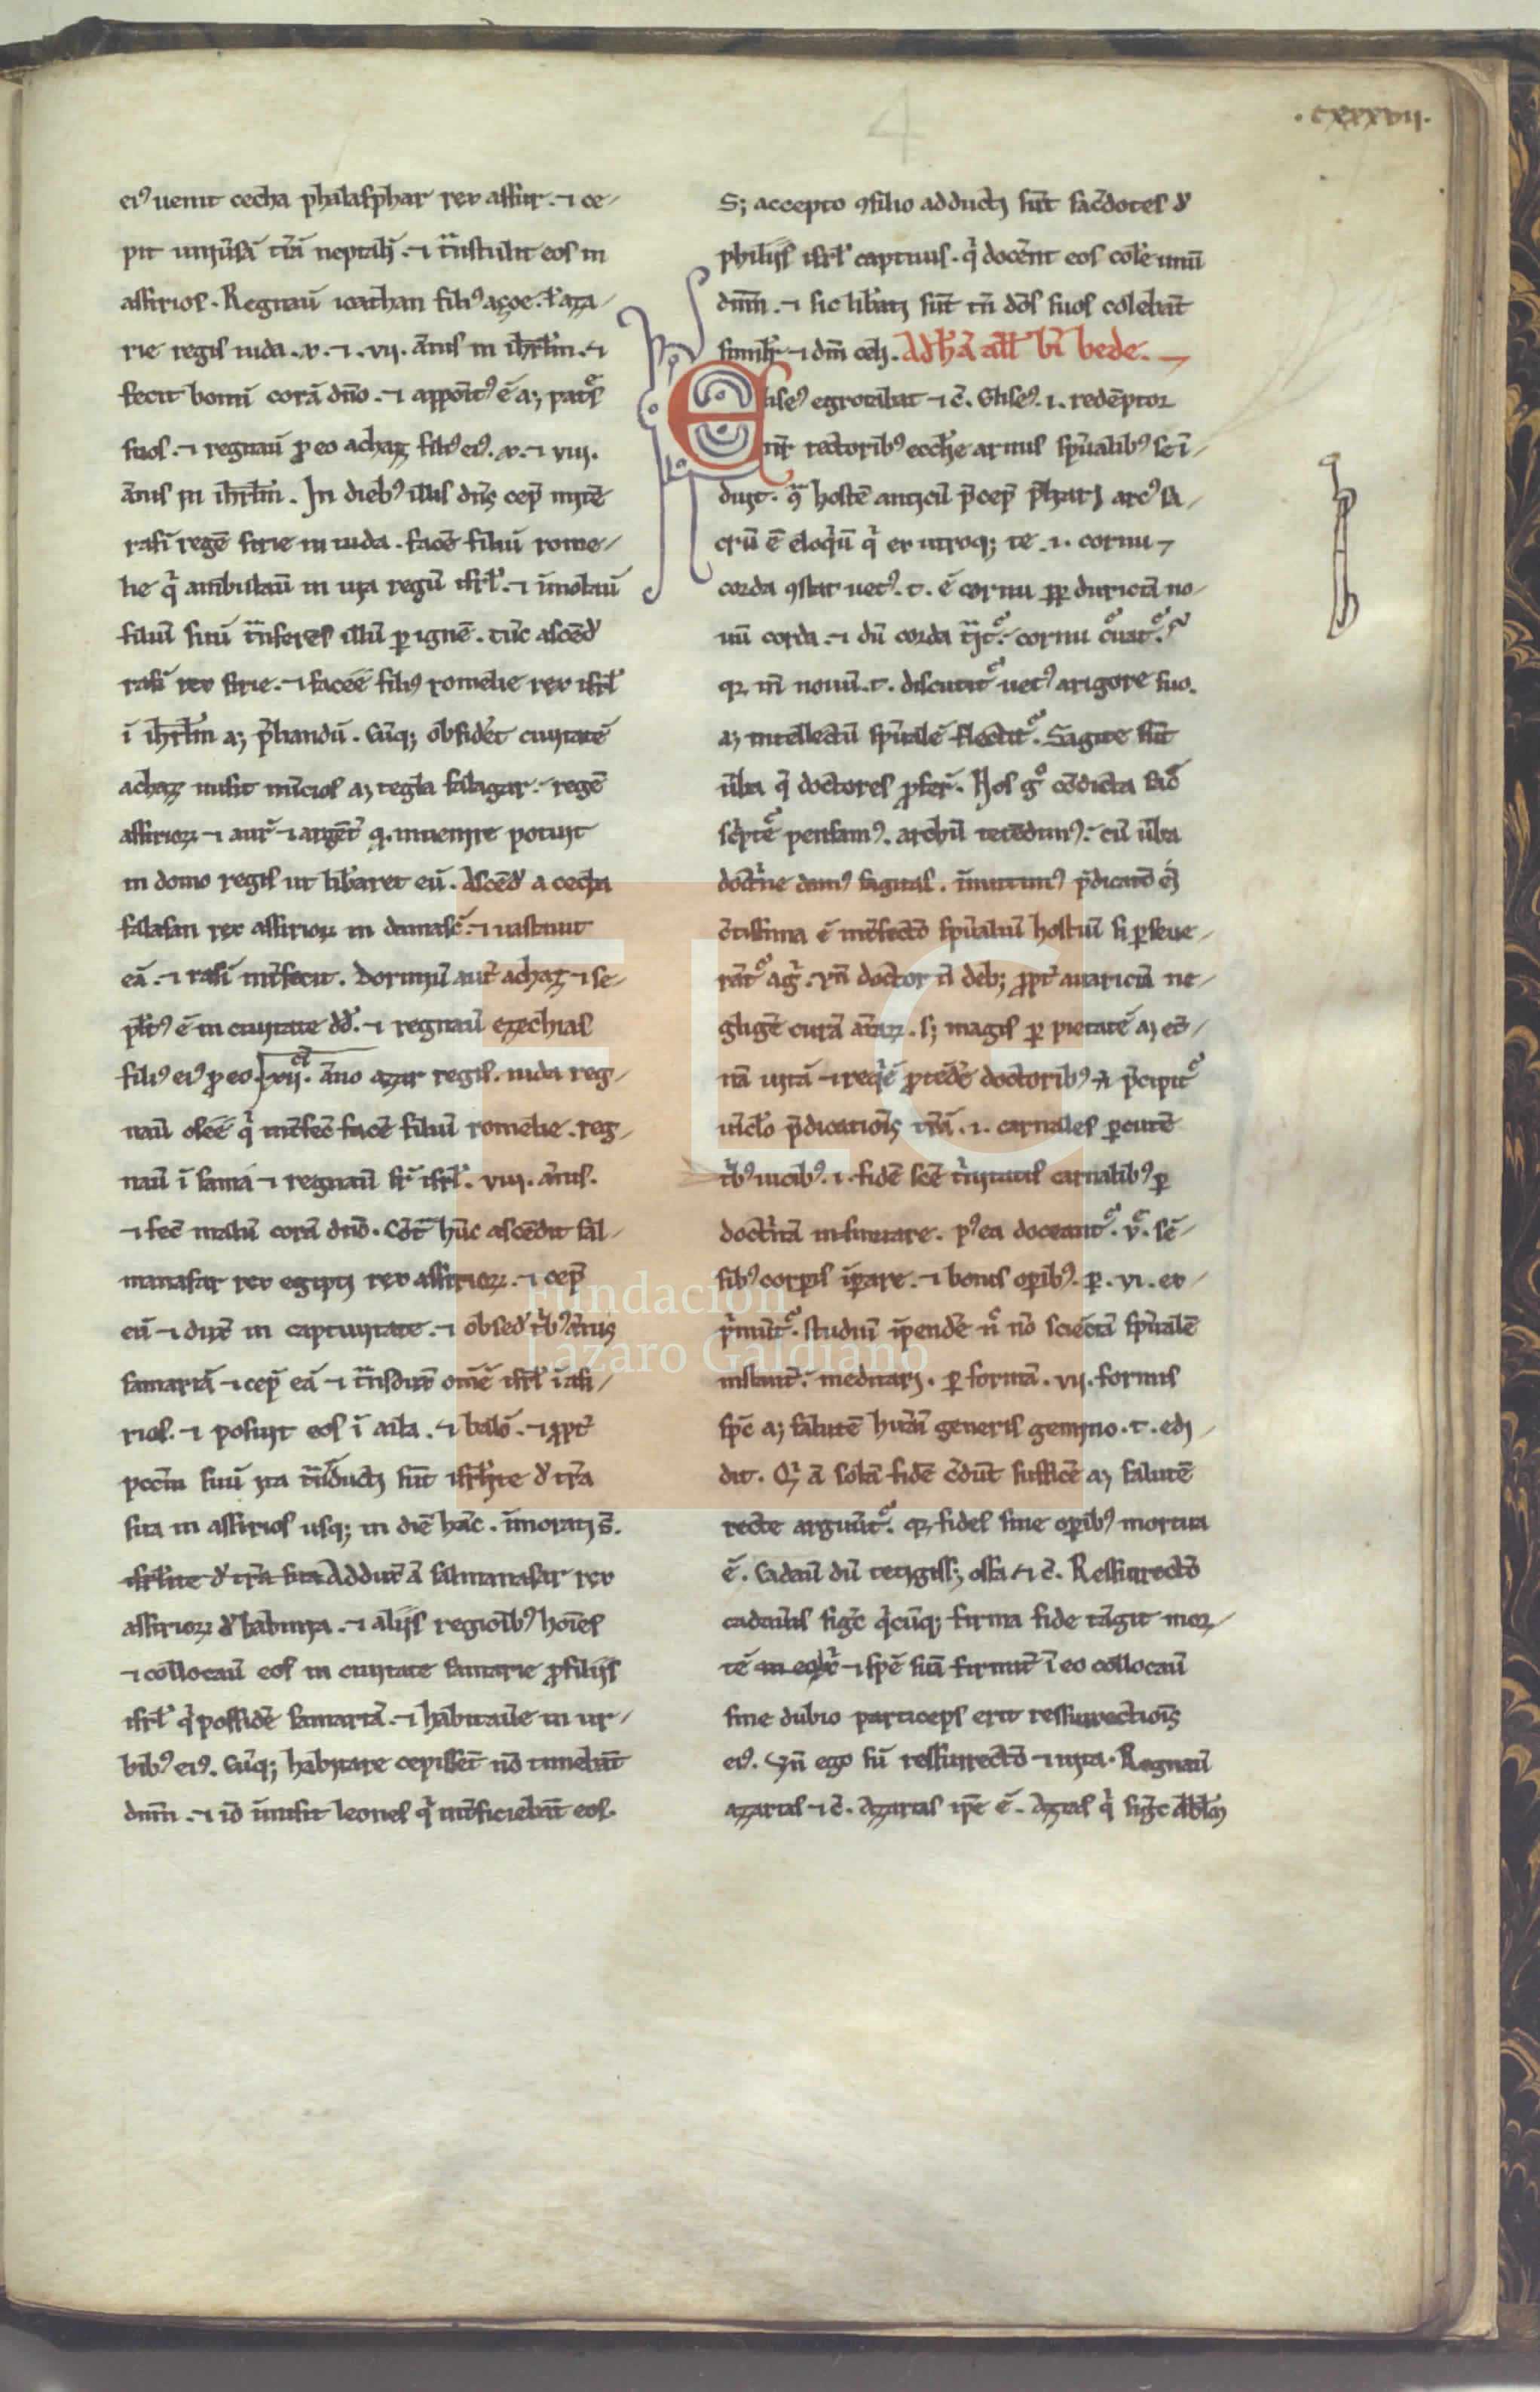 .cxxxvii.
4
ei⁹ uenit cecha phalasphar rex assur. ⁊ ce-
pit uniu̾sā t̄rā neptalī. ⁊ t̾nstulit eos in
assirios. Regnau̅ ioathan fili⁹ aȝoe. ł aza-
rie regis iuda .x. ⁊ .vii. ānis in ihrl̄m. ⁊
fecit bonū corā dn̄o. ⁊ appoit⁹ ē aꝫ pat̾s
suos. ⁊ regnau̅ ꝓ eo achaz fili⁹ ei⁹ .x. ⁊ viii.
ānis in ihrl̄m. In dieb⁹ illis dn̄s cep̄ mit̄e
rasī regē sirie in iuda. facēe filiū rome-
lie q̇ ambulau̅ in uia regū isrl̄. ⁊ īmolau̅
filiū suū t̾nferes illū ꝑ ignē. tūc ascēd̾
rasī rex sirie. ⁊ facēe fili⁹ romelie rex isrl̄
ī ihrl̄m aꝫ p̾liandū. Cūqꝫ obsid̾et ciuitatē
achaz misit nūcios aꝫ tegla falagar. regē
assirioꝝ ⁊ aur̄ ⁊ argēt̄ q̾ inuenire potuit
in domo regis ut lib̾aret eū. Ascēd̾ a cecha
falasan rex assirioꝝ in damasc̄. ⁊ uastauit
eā. ⁊ rasī int̾fecit. Dormiu̅ aut̄ achaz ⁊ se-
pl̄t⁹ ē in ciuitate dd̄. ⁊ regnau̅ ezechias
fili⁹ ei⁹ ꝓ eo. .xii. āno azar regis. iuda reg-
nau̅ osēe q̇ int̾fec̄ facēe filiū romelie. reg-
nau̅ ī samā ⁊ regnau̅ sr̄ isrl̄. viii. ānis.
⁊ fec̄ malū corā dn̄o. Cōt̄ hūc ascēdit sal-
manasar rex egipti rex assirioꝝ. ⁊ cep̄
eū ⁊ dux̄ in captiuitate. ⁊ obsed̾ t̾b⁹ ānis
samariā ⁊ cep̄ eā ⁊ t̾nsdux̄ om̄ē isrl̄ ī asi-
rios. ⁊ posuit eos ī aila. ⁊ balō. ⁊ ꝓpt̾
pcc̄m suū ita t̾nducti sūt isrl̄ite d̾ t̄ra
sua in assirios usqꝫ in diē hāc. īmorati s̄.
isrl̄ite d̾ t̄ra sua Addux̄ ā salmanasar rex
assirioꝝ d̾ babinia. ⁊ alijs regiōib⁹ hoīes
⁊ collocau̅ eos in ciuitate samarie ꝓ filijs
isrl̄ q̇ possidē samariā. ⁊ habitau̅e in ur-
bib⁹ ei⁹. Cūqꝫ habitare cepissēt nō timebāt
dn̄m. ⁊ iō īmisit leones q̇ int̾ficiebāt eos.
Sꝫ accepto ꝯsilio adducti sūt sac̾dotes d̾
philijs isrl̄ captiuis. q̇ doc̾ent eos col̾e unū
dn̄m. ⁊ sic lib̾ati sūt tn̄ dōs suos colebāt
simil̄r ⁊ dm̄ celi. Ad hā all̄ bī bede.
Elise⁹ egrotabat ⁊ c̄. Elise⁹ .i. redēptor
nr̄ rectorib⁹ eccl̄ie armis sp̄ualib⁹ se ī-
duit. q̾ hostē anticū p̾cep̄ p̾liari arc⁹ sa-
crū ē eloq̇ū q̇ ex utroqꝫ te .i. cornu ⁊
corda ꝯstat uet⁹ .t. ē cornu ꝓp̄ duriciā no-
uū corda. ⁊ dū corda t̾it̾. cornu c̾uat̾.
qꝫ m̄ nouū .t. discutit̾ uet⁹ a rigore suo.
aꝫ intellectū sp̄ualē flectit̾. Sagite sūt
u̾ba q̾ doctores ꝓfer̄. Hos g̊ cōdicta
sc̾pte pensam⁹. archū tēdim⁹. cū u̾ba
doct̾ne dam⁹ sagitas. īmitim⁹ p̾dicatō
c̾tissima ē int̾fectō sp̄ualiū hostiū si ꝑseue-
rāt̾ ag̾. Vn̄ doctor n̄ debꝫ ꝓpt̾ auariciā ne-
gligē curā aīaꝝ. sꝫ magis ꝑ pietatē aꝫ et̾-
nā uitā ⁊ req̇ē ꝓtēd̾e doctorib⁹ ⁊ p̾cipit̾
uīclo p̾dicatiōis t̄rā .i. carnales ꝑcut̾e
t̾b⁹ uicib⁹ .i. fidē scē t̾nitatis carnalib⁹ ꝑ
doct̾nā insinuare. p⁹ ea doceant̾. v̄. sē-
sib⁹ corꝑis īꝑare. ⁊ bonis oꝑib⁹. ꝑ .vi. ex-
p̾mūt̾. studiū īpend̾e n̄ nō sciētiā sp̄ualē
instant̾. meditari. ꝑ formā .vii. formis
sp̄c aꝫ salutē hūani generis gemino .t. edi-
dit. Q̇ ā solā fidē c̾dūt suffic̾e aꝫ salutē
recte arguūt̾. qꝫ fides sine oꝑib⁹ mortua
ē. Cadau̾ dū tetigissꝫ ossa ⁊ c̄. Ressurectō
cadau̾is sig̾t q̇cūqꝫ firma fide tāgit mor-
tē ⁊ spē suā firmit̾ ī eo collocau̅
sine dubio particeps erit ressurectiōis
ei⁹. Vn̄ ego sū ressurectō ⁊ uita. Regnau̅
azarias ⁊ c̄. Azarias ip̄e ē. Azias q̇ sig̾t
Fundación
Lázaro Galdiano
FLG